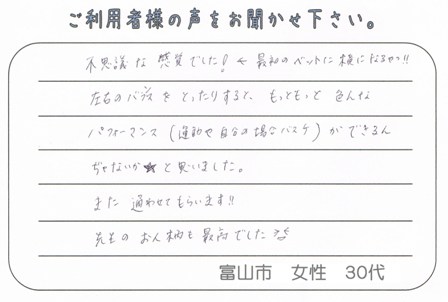 ご利用者様の声をお聞かせ下さい。
不思議な感覚でした! ← 最初のベットに横になるやつ!!
左右のバランスをとったりすると、もっともっと色んな
パフォーマンス(運動や自分の場合バスケ)ができるん
ぢゃないか★と思いました。
また通わせてもらいます!!
先生のお人柄も最高でした
富山市 女性 30代